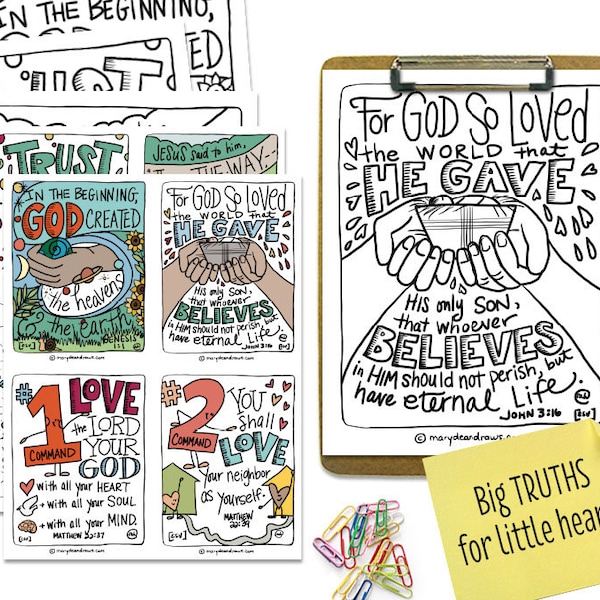 IN THE BEGINNING,
GOD
CREATED
TRUST
JESUS said to him,
THE WAY
IN THE BEGINNING,
GOD CREATED
the heavens
& the earth
GENESIS
1:1
For GOD So LOVED
the WORLD that
HE GAVE
HIS only SON,
that whoever
BELIEVES
in HIM should not perish, but
have eternal Life.
JOHN 3:16
[ESV]
© marydeandraws.com
© marydeandraws.com
#1
COMMAND
LOVE
the LORD
YOUR
GOD
with all your HEART
+ with all your SOUL
+ with all your MIND.
MATTHEW 22:37
[ESV]
© marydeandraws.com
#2
COMMAND
YOU
shall
LOVE
your neighbor
as yourself.
MATTHEW
22:39
[ESV]
© marydeandraws.com
For GOD So LOVED
the WORLD that
HE GAVE
HIS only SON,
that whoever
BELIEVES
in HIM should not perish, but
have eternal Life.
JOHN 3:16
[ESV]
© marydeandraws.com
Big TRUTHS
for little hear